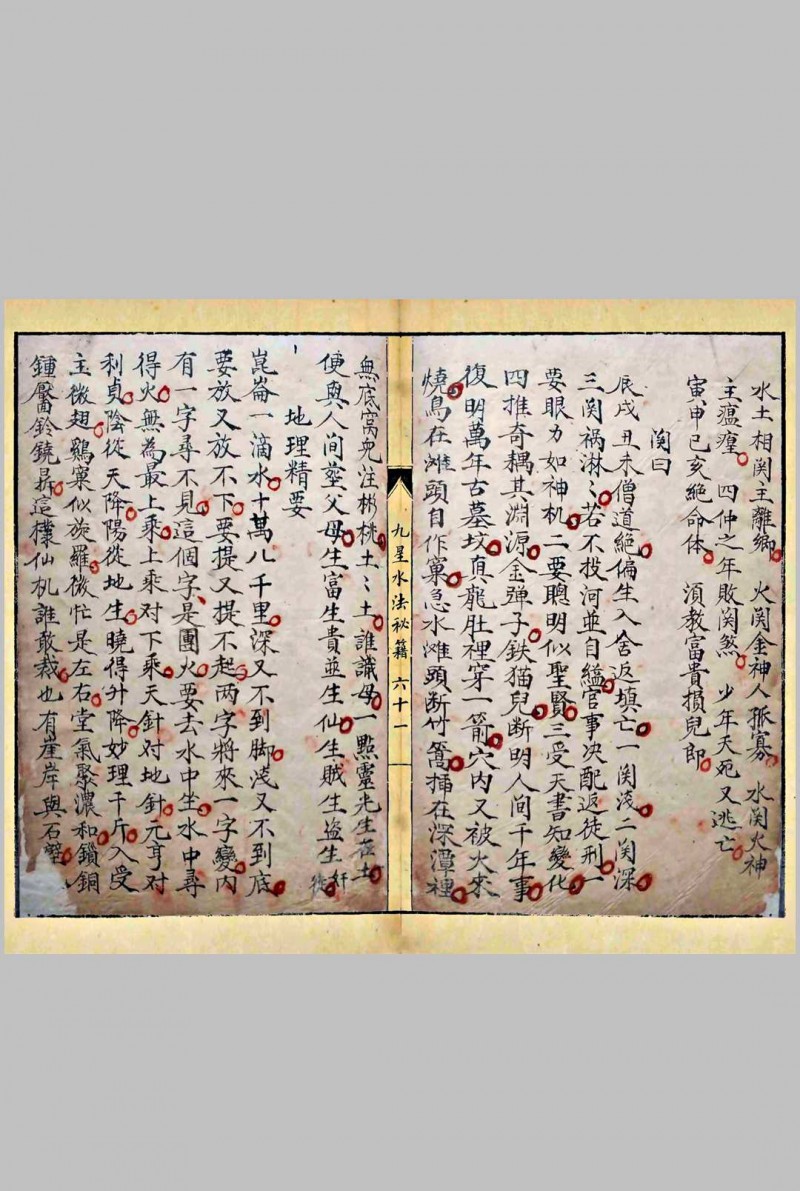 水土相関主離鄉　火関金神人孤寡　水関火神
主瘟㾮　四仲之年敗関煞　少年夭死又逃亡
寅申巳亥絕命体　須教富貴損兒郎
関曰
辰戌丑未僧道絕偏生入舍返填亡一関淺二関深
三関祸淋〻若不投河並自縊官事决配返徒刑一
要眼力如神机二要聰明似聖賢三受天書知變化
四推奇耦其淵源金弹子鉄猫兒断明人间千年事
復明萬年古墓坟真龍肚裡穿一箭穴内又被火來
燒鳥在滩頭自作窠急水滩頭断竹篙揷在深潭裡
九星水法秘籍　六十一
無底窝兜注彬桃土〻土誰識母一㸃靈光生在土
便與人间塟父母生富生貴並生仙生賊生盗生奸
徒
地理精要
崑崙一滴水十萬八千里深又不到脚浅又不到底
要放又放不下要提又提不起两字將來一字變内
有一字尋不見這個字是團火要去水中坐水中尋
得火無為最上乘上乘对下乘天針对地針元亨对
利貞陰從天降陽從地生曉得升降妙理千斤入受
主微翅鷄窠似旋羅微忙是左右堂氣聚濃和鎖銅
鍾靨鈴鐃昇這樸仙机誰敢裁也有崖岸與石壁